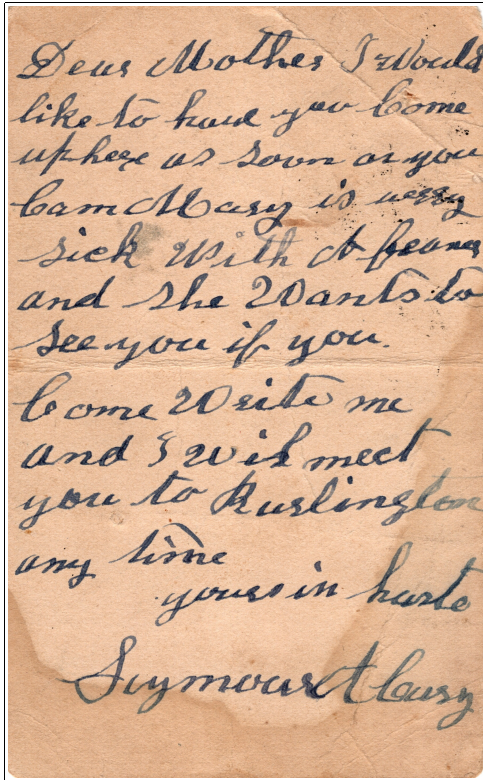 Dear Mother I Would
like to have you Come
up here as soon as you
Can Mary is very
sick With A feaver
and she Wants to
see you if you.
Come Write me
and I will meet
you to Burlington
any time
yours in haste
Seymour A